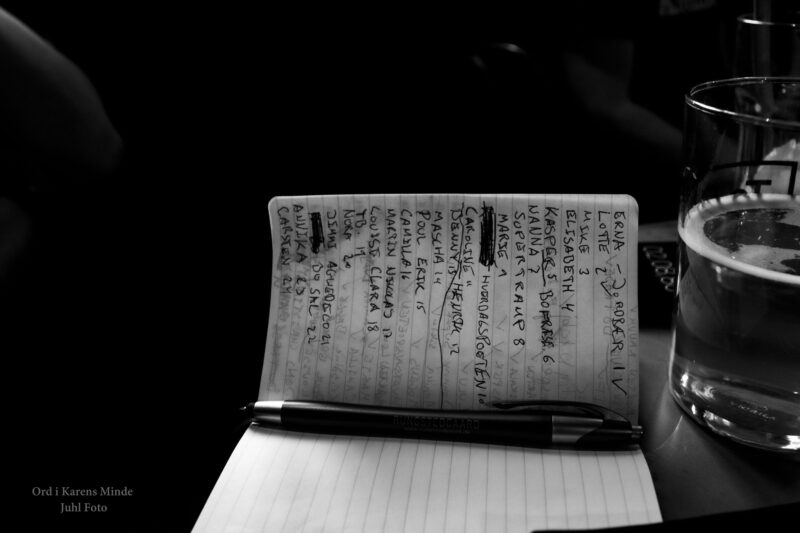 ERNA – 1 V
LOTTE 2 V
MIKE 3
ELISABETH 4
KASPER 5 6
NANNA 7
SUPERTRAMP 8
MARIE 9
HVERDAGSPOETEN 10
CAROLINE 11
BENNY 13 HENRIK 12
MASCHA 14
POUL ERIK 15
CAMILLA 16
MARTIN NIKOLAJ 17
LOUISE CLARA 18
19
NORA 20
JIMMI 21
DO SAL 22
ANNIKA 23
CARSTEN 24
RUNGSTEDGAARD
Ord i Karens Minde
Juhl Foto